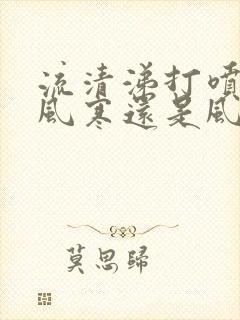 流清涕打噴
風寒還是風
莫思歸